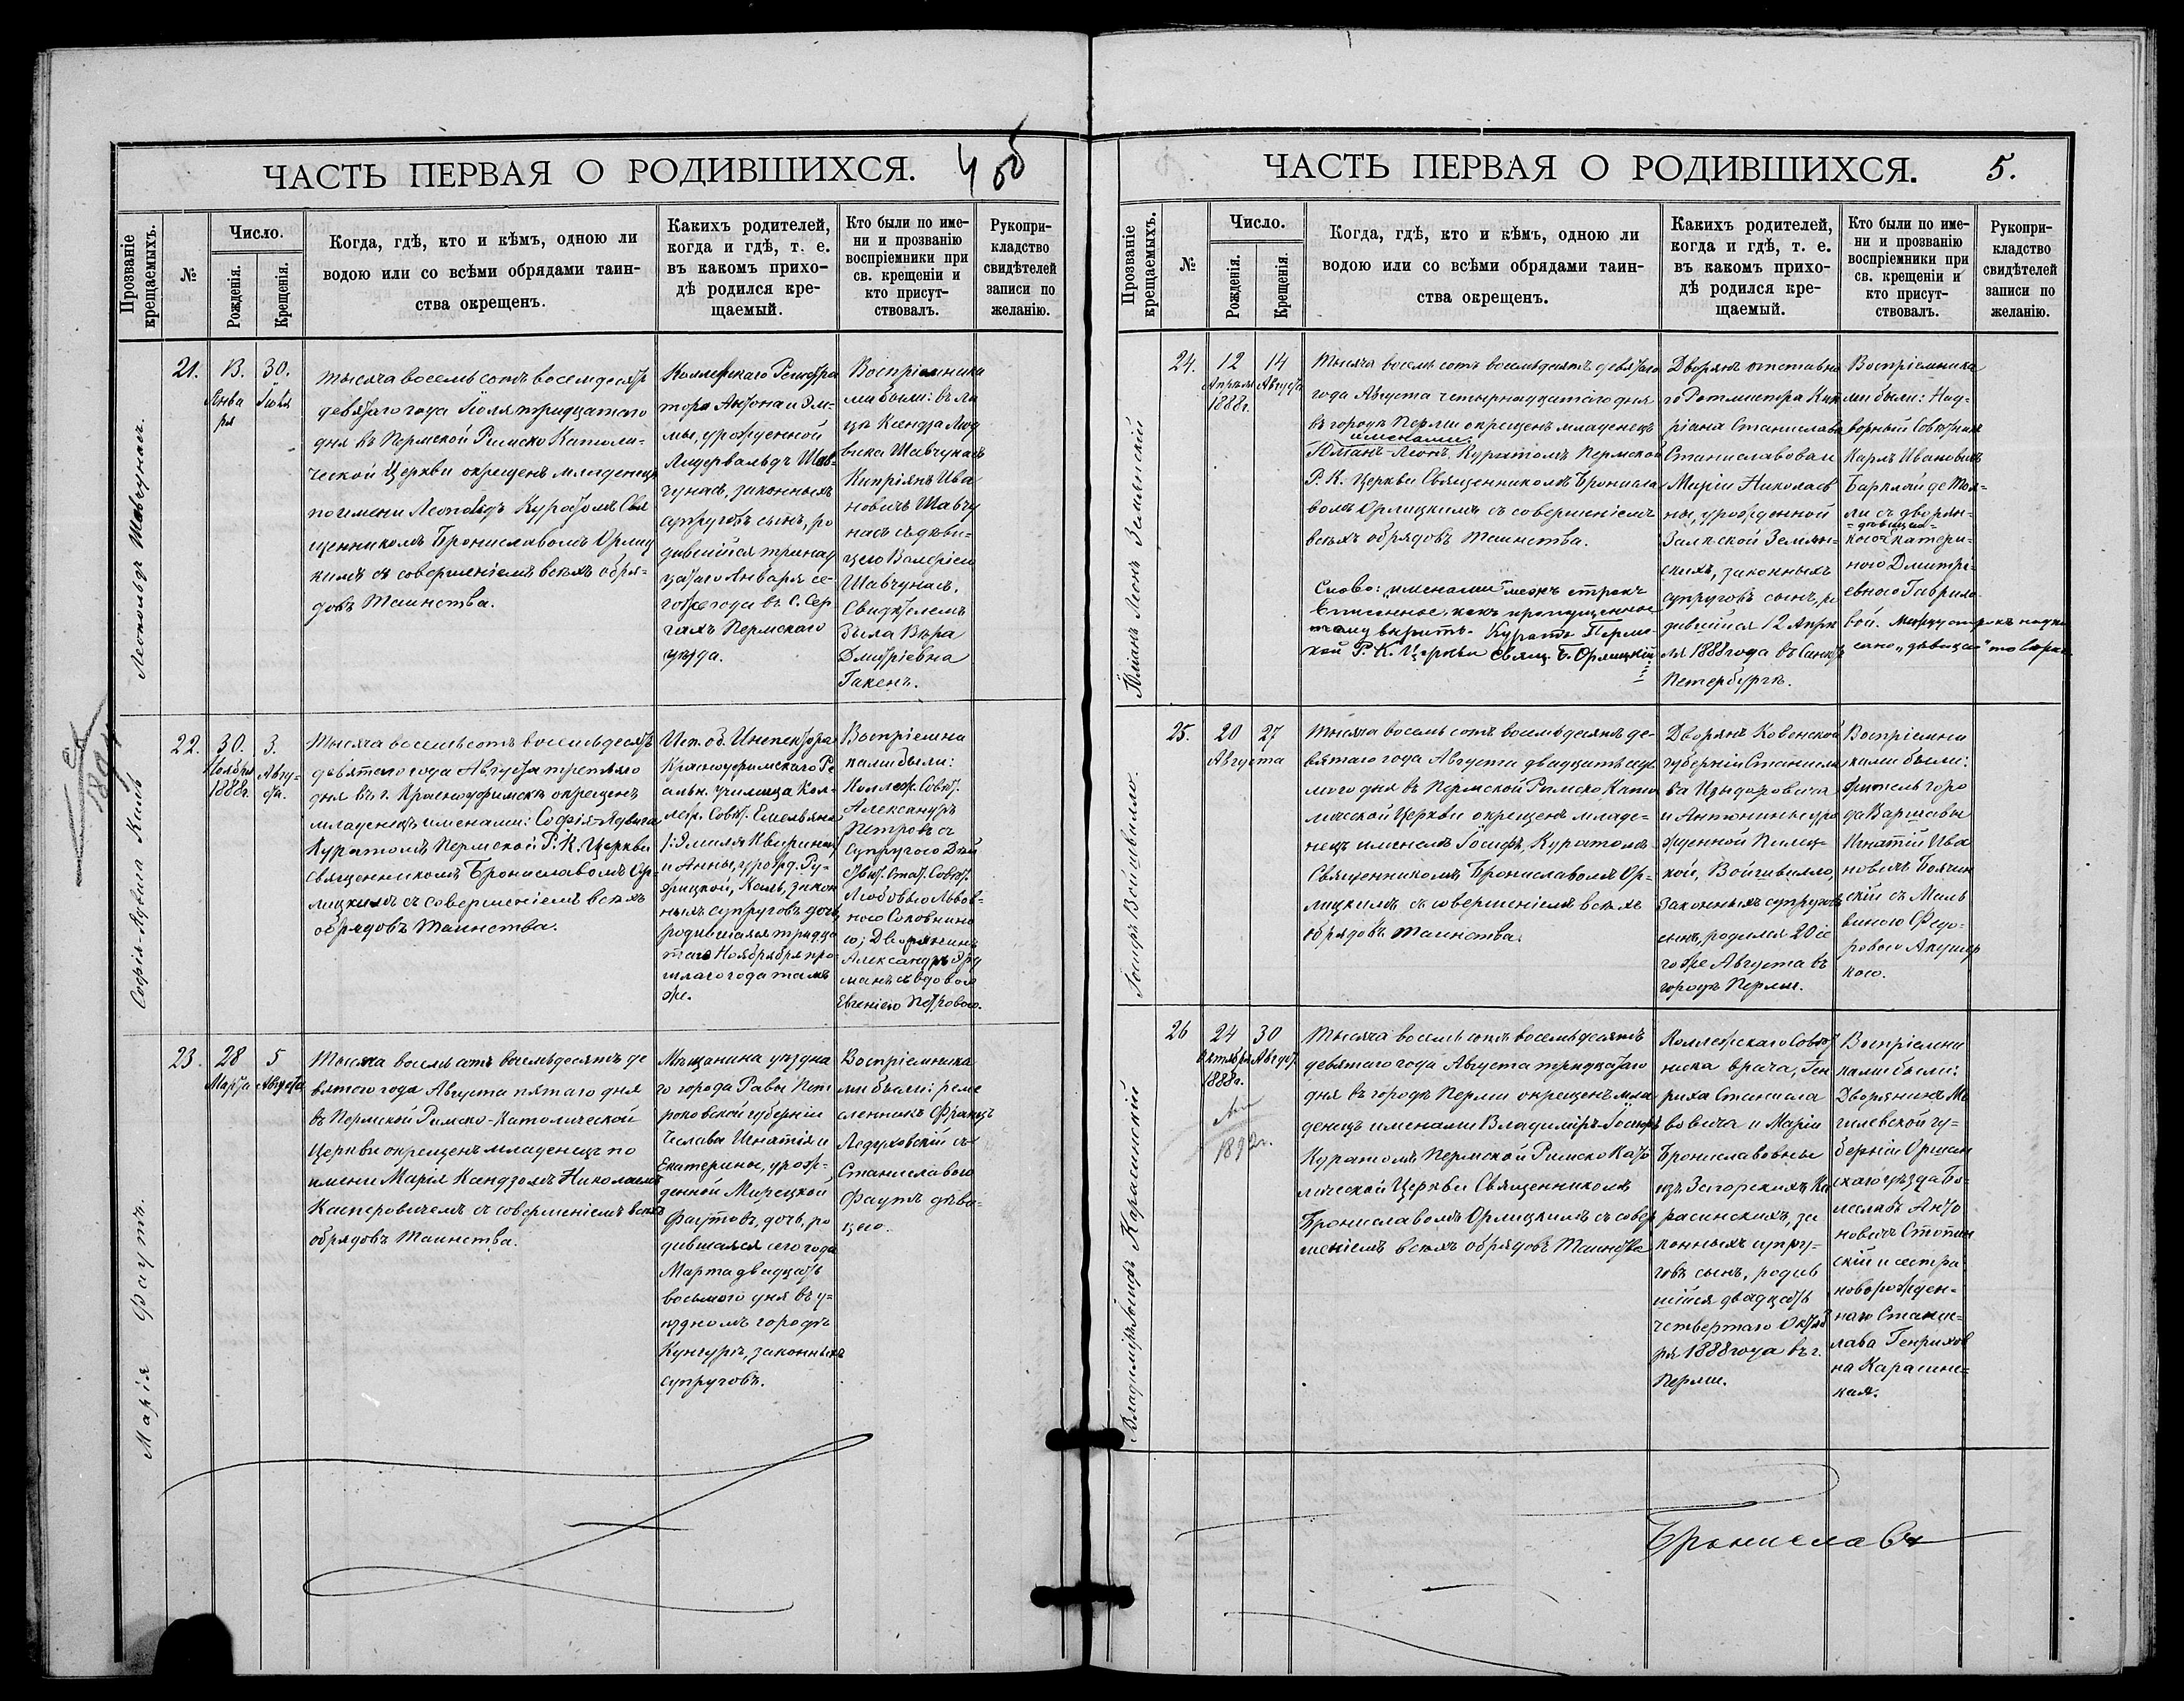 ЧАСТЬ ПЕРВАЯ О РОДИВШИХСЯ.
4 об
Прозваніе крещаемыхъ.
№
Число.
Рожденія.
Крещенія.
Когда, гдѣ, кто и кѣмъ, одною ли
водою или со всѣми обрядами таин-
ства окрещенъ.
Какихъ родителей,
когда и гдѣ, т. е.
въ какомъ прихо-
дѣ родился кре-
щаемый.
Кто были по име-
ни и прозванію
воспріемники при
св. крещеніи и
кто присут-
ствовалъ.
Рукопри-
кладство
свидѣтелей
записи по
желанію.
Леопольдъ Шавчунасъ.
21.
13.
Янва
ря
30.
Іюля
Тысяча восемьсотъ восемдесятъ
девятаго года Іюля тридцатаго
дня въ Пермской Римско Католи-
ческой Церкви окрещенъ младенецъ
по имени Куратомъ Свя
щенникомъ Брониславомъ Орлиц
кимъ съ совершеніемъ всѣхъ обря-
довъ Таинства.
Коллежскаго Регистра
тора Антона и Эм-
мы, урожденной
Лидервальдъ Шав-
чунасъ, законныхъ
супруговъ сынъ, ро
дившійся тринад
цатаго Января се-
гоже года въ С. Сер
гахъ Пермскаго
уѣзда.
Воспріемника
ми были: въ ли
цѣ Ксендза Люд
вика Шавчунасъ
Кипріянъ Ива
новичъ Шавчу
насъ съ дѣви-
цею Валеріею
Шавчунасъ.
Свидѣтелемъ
была Вѣра
Дмитріевна
Гакенъ.
Софія-Ядвига Каль
22.
30.
Ноября
1888г.
3.
Авгу-
ста.
Тысяча восемьсотъ восемьдесятъ
девятаго года Августа третьяго
дня въ г. Красноуфимскѣ окрещенъ
младенецъ именами: Софія-Ядвига
Куратомъ Пермской Р. К. Церкви
Священникомъ Брониславомъ Ор-
лицкимъ съ совершеніемъ всѣхъ
обрядовъ Таинства.
Исп. об. Инспектора
Красноуфимскаго Ре
альн. училища Кол-
леж. Совѣт. Емельяна
и Анны, урожд. Ру-
Каль, закон
ныхъ супруговъ дочь,
родившаяся тридца
таго Ноября про-
шлаго года тамъ
же.
Воспріемни
ками были:
Коллеж. Совѣт.
Александръ
Петровъ съ
супругою Дѣй
ствит. Стат. Совѣт.
Любовью Львов-
ною
ю; Дворянинъ
Александръ
съ вдовою
Евгеніею Петровою.
Марія Фаутъ.
23.
28
Марта
5
Августа
Тысяча восемьсотъ восемьдесятъ де
вятаго года Августа пятаго дня
въ Пермской Римско-Католической
Церкви окрещенъ младенецъ по
имени Марія Ксендзомъ Николаемъ
Касперовичемъ съ совершеніемъ всѣхъ
обрядовъ Таинства.
Мѣщанина уѣздна
го города Равы Пет
роковской губерніи
Чеслава Игнатія и
Екатерины, урож-
денной Мирецкой
Фаутовъ, дочь, ро
дившаяся сего года
Марта двадцать
восьмого дня въ у-
ѣздномъ городѣ
Кунгурѣ, законныхъ
супруговъ.
Воспріемника
ми были: реме
сленникъ Францъ
Ледуховскій съ
Станиславою
Фаутъ дѣви-
цею.
ЧАСТЬ ПЕРВАЯ О РОДИВШИХСЯ.
5.
Прозваніе крещаемыхъ.
№
Число.
Рожденія.
Крещенія.
Когда, гдѣ, кто и кѣмъ, одною ли
водою или со всѣми обрядами таин-
ства окрещенъ.
Какихъ родителей,
когда и гдѣ, т. е.
въ какомъ прихо-
дѣ родился кре-
щаемый.
Кто были по име-
ни и прозванію
воспріемники при
св. крещеніи и
кто присут-
ствовалъ.
Рукопри-
кладство
свидѣтелей
записи по
желанію.
Юліанъ Леонъ Землянскій
24.
12
Апрѣля
1888г.
14
Августа
Тысяча восемьсотъ восемьдесятъ девятаго
года Августа четырнадцатаго дня
въ городѣ Перми окрещенъ младенецъ
именами
Юліанъ-Леонъ, Куратомъ Пермской
Р. К. Церкви Священникомъ Бронисла
вомъ Орлицкимъ съ совершеніемъ
всѣхъ обрядовъ Таинства.
Слово: „именами" межъ строкъ
вписанное, какъ пропущенное
тому вѣрить. Куратъ Перм-
кой Р. К. Церкви Свящ. Б. Орлицкій
Дворянъ отставна
го Ротмистра Кип
ріана Станислава
Станиславова и
Маріи Николаев
ны, урожденной
Залѣской Землян-
скихъ, законныхъ
супруговъ сынъ, ро
дившійся 12 Апрѣ
ля 1888 года въ Санктъ
Петербургѣ.
Воспріемника
ми были: Над-
ворный Совѣтникъ
Карлъ Ивановичъ
Барклай де Тол-
ли съ дворян-
- дѣвицею -
кою Катери-
ною Дмитрі-
евною Гаврило
вой. Между строкъ напи
сано „дѣвицею" то вѣрно.
Іосифъ Войшвилло.
25.
20
27
Августа
Тысяча восемьсотъ восемьдесятъ де-
вятаго года Августа двадцать седь
маго дня въ Пермской Римско Като
лической Церкви окрещенъ младе-
нецъ именемъ Іосифъ, Куратомъ
Священникомъ Брониславомъ Ор-
лицкимъ съ совершеніемъ всѣхъ
обрядовъ Таинства.
Дворянъ Ковенской
губерніи Станисла
ва Изыдоровича
и Антонины уро
жденной Пилец-
кой, Войшвилло,
законныхъ супруговъ
сынъ, родился 20 се
гоже Августа въ
городѣ Перми.
Воспріемни
ками были:
житель горо
да Варшавы
Игнатій Ива
новичъ
скій съ Маль
виною Федо-
ровою Акушер
кою.
Владиміръ Іосифъ Карасинскій
26
24
Октября
1888г.
30
Август.
1892г.
Тысяча восемьсотъ восемьдесятъ
девятаго года Августа тридцатаго
дня въ городѣ Перми окрещенъ мла
денецъ именами Владиміръ-Іосифъ
Куратомъ Пермской Римско Като
лической Церкви Священникомъ
Брониславомъ Орлицкимъ съ совер
шеніемъ всѣхъ обрядовъ Таинства
Коллежскаго Совѣт
ника врача, Ген
риха Станисла
вовича и Маріи
Брониславовны
изъ Загорскихъ Ка
расинскихъ, за
конныхъ супру-
говъ сынъ, родив
шійся двадцать
четвертаго Октяб
ря 1888 года въ г.
Перми.
Воспріемни
ками были:
Дворянинъ Мо
гилевской гу-
берніи Оршан
скаго уѣзда Бо-
леславъ Анто
новичъ
скій и сестра
новорожден-
наго Станис-
лава Генрихов
на Карасинс-
кая.
Брониславъ